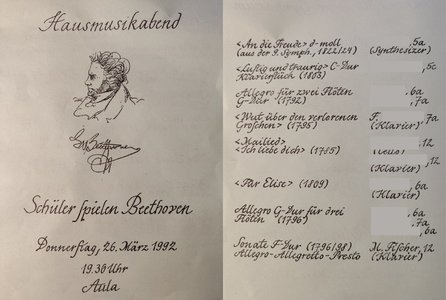 Hausmusikabend
Schüler spielen Beethoven
Donnerstag, 26. März 1992
19.30 Uhr
Aula
<An die Freude> d-moll ,5a
(aus der 9. Symph., 1822/24) (Synthesizer)
<Lustig und traurig> C-Dur ,5c
Klavierstück (1803)
Allegro für zwei Flöten ,6a
G-Dur (1792) ,7a
<Wut über den verlorenen F. ,7a
Groschen> (1795) (Klavier)
<Mailied> ,12
<Ich liebe dich> (1795) ,12
(Klavier)
<Für Elise> (1809) ,6a
(Klavier)
Allegro G-Dur für drei ,6a
Flöten (1796) ,7a
,6a
Sonate F-Dur (1796/98) M. Fischer, 12
Allegro-Allegretto-Presto (Klavier)